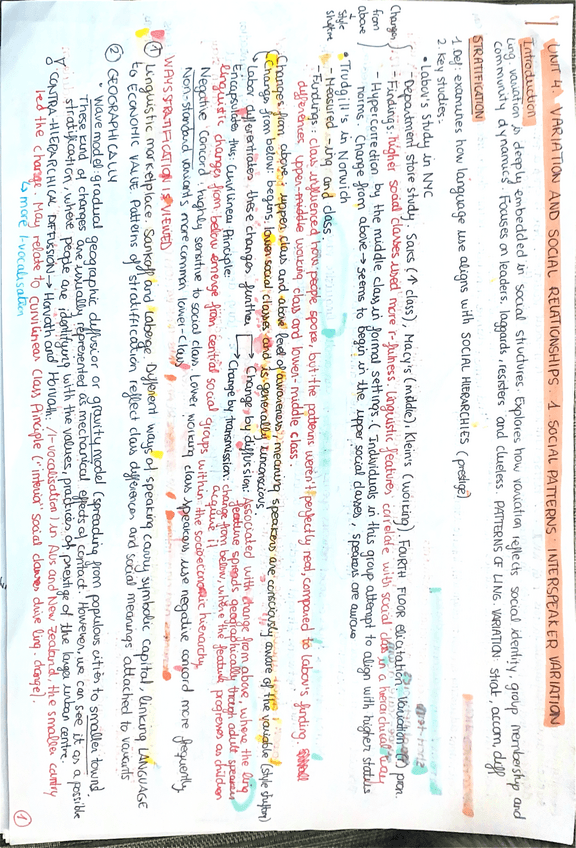 UNIT 4: VARIATION AND SOCIAL RELATIONSHIPS. 1 SOCIAL PATTERNS: INTERSPEAKER VARIATION
Introduction
Ling variation is deeply embedded in social structures. Explores how variation reflects social identity, group membership and
community dynamics. Focuses on leaders, laggards, resisters and clueless. PATTERNS OF LING VARIATION: strat, accom, diff
STRATIFICATION
1 Def: examines how language use aligns with SOCIAL HIERARCHIES (prestige)
2. Key studies:
• Labov's Study in NYC
- Department store study. Saks (↑ class), Macy's (middle), Klein's (working). FOURTH FLOOR elicitation. Variation pron.
- Findings: higher social classes used more r-fulness. Linguistic features correlate with social class in a hierarchical way
- Hypercorrection by the middle class in formal settings. (Individuals in this group attempt to align with higher status
norms. Change from above → seems to begin in the upper social classes, speakers are aware
Changes from above
• Trudgill's in Norwich
Style shifting
- Measured -ing and class.
- Findings: class influenced how people spoke, but the patterns weren't perfectly neat, compared to Labov's finding small
differences upper-middle working class and lower-middle class.
Changes from above: upper class and above level of awareness, meaning speakers are consciously aware of the variable (style shifton)
Change from below: begins lower social classes and is generally unconscious.
↳ Labov differentiates these changes further → Change by diffusion: Associated with change from above, where the ling
feature spreads geographically through adult speakers
→ Change by transmission: change from below, where the feature progresses as children
acquire it
Encapsulates this: Curvilinear Principle:
linguistic changes from below emerge from central social groups within the socioeconomic hierarchy.
Negative Concord: highly sensitive to social class. Lower working class speakers use negative concord more frequently
Non-standard variants more common lower-class
WAYS STRATIFICATION IS VIEWED
① Linguistic marketplace. Sankoff and Laberge. Different ways of speaking carry symbolic capital, linking LANGUAGE
to ECONOMIC VALUE. Patterns of stratification reflect class differences and social meanings attached to variants
② GEOGRAPHICALLY
• Wave model: gradual geographic diffusion or gravity model (spreading from populous cities to smaller towns)
These kind of changes are usually represented as mechanical effects of contact. However, we can see it as a possible
stratification, where people are identifying with the values, practices or prestige of the larger urban centre.
CONTRA-HIERARCHICAL DIFFUSION → Horvath and Horvath: /l-vocalisation in Aus and New Zealand, the smaller country
led the change. May relate to Curvilinear Class Principle ("interior" social classes drive ling. change).
↳ more l-vocalisation
①